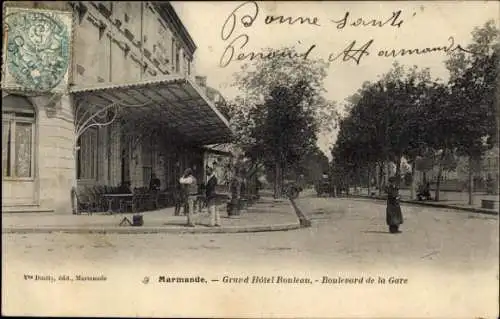 Bonne santé
Benoit Harmande
Vve Dutilly, édit., Marmande
9 Marmande. - Grand Hôtel Bouleau, - Boulevard de la Gare